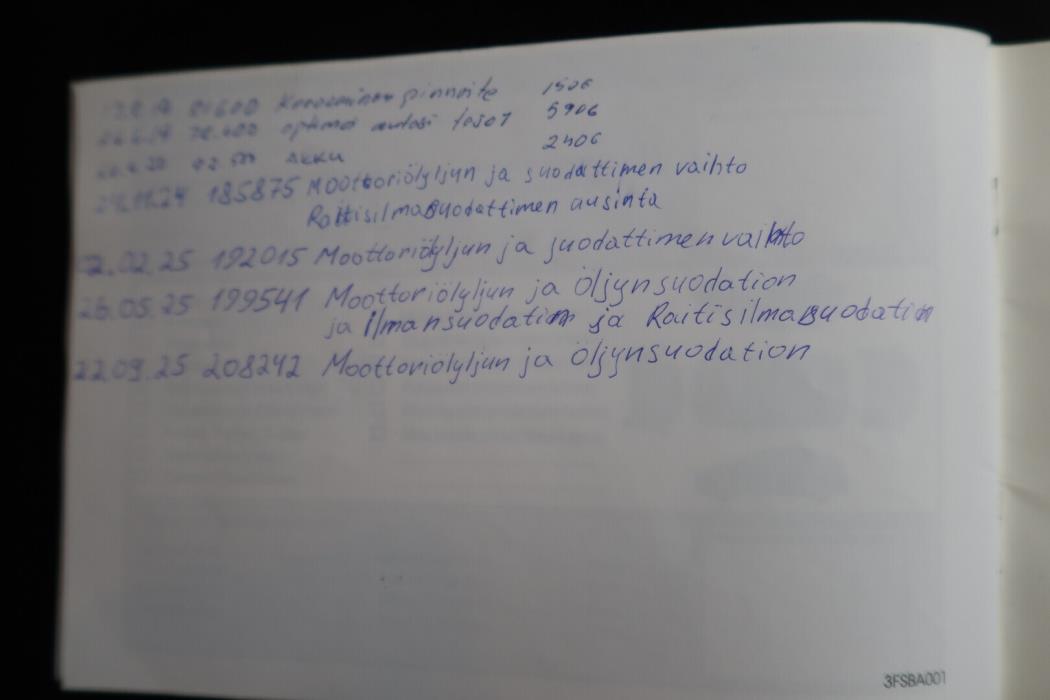 pinnoite 150€
590€
Akku 240€
24.11.24 185875 Moottoriölyljun ja suodattimen vaihto
Raitisilmasuodattimen
02.02.25 192015 Moottoriölyljun ja suodattimen vaihto
26.05.25 199541 Moottoriölyljun ja öljynsuodation
ja ilmansuodation ja Raitisilmasuodation
22.09.25 208242 Moottoriölyljun ja öljynsuodation
3FSBA001